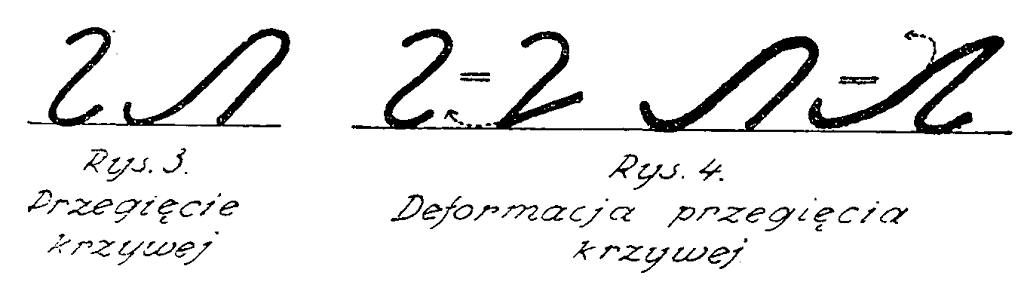 Rys. 3.
Przegięcie
krzywej
Rys. 4.
Deformacja przegięcia
krzywej